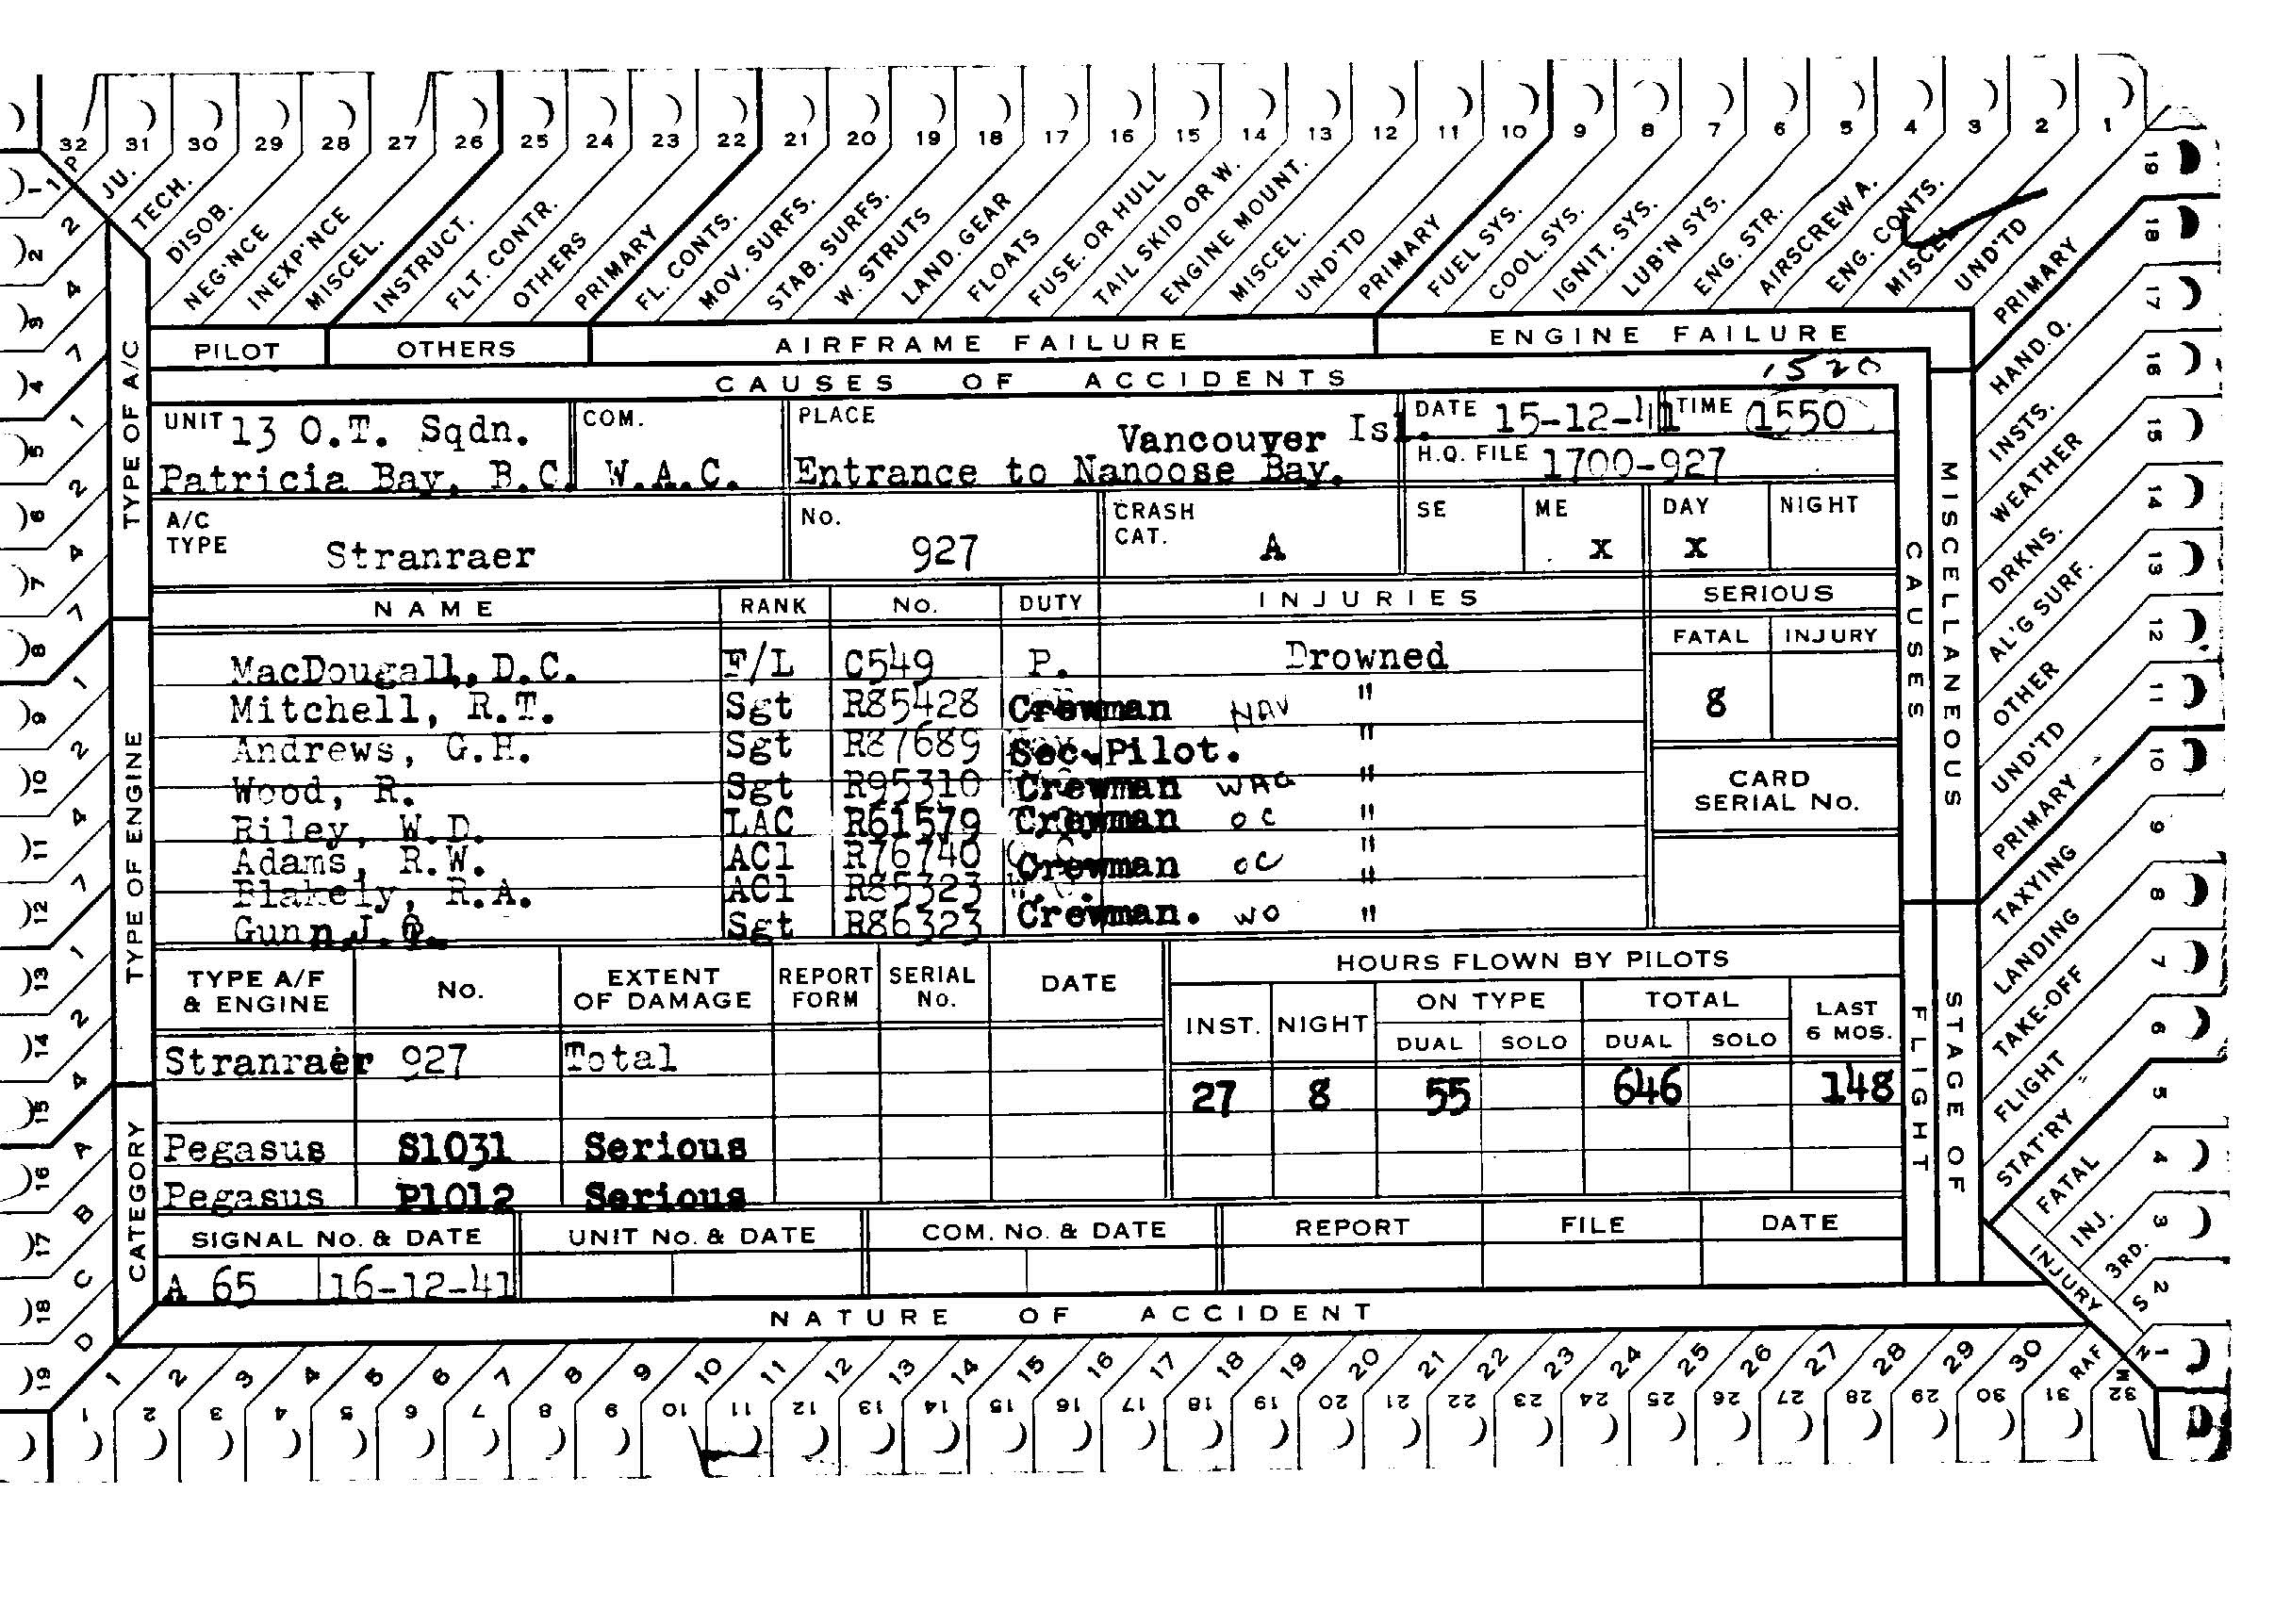 32 31 30 29 28 27 26 25 24 23 22 21 20 19 18 17 16 15 14 13 12 11 10 9 8 7 6 5 4 3 2 1
P JU. TECH. DISOB. NEG'NCE INEXP'NCE MISCEL. INSTRUCT. FLT. CONTR. OTHERS PRIMARY FL. CONTS. MOV. SURFS. STAB. SURFS. W. STRUTS LAND. GEAR FLOATS FUSE. OR HULL TAIL SKID OR W. ENGINE MOUNT. MISCEL. UND'TD PRIMARY FUEL SYS. COOL. SYS. IGNIT. SYS. LUB'N SYS. ENG. STR. AIRSCREW A. ENG. CONTS. MISCEL. UND'TD PRIMARY
PILOT OTHERS AIRFRAME FAILURE ENGINE FAILURE
CAUSES OF ACCIDENTS 1520
UNIT 13 O.T. Sqdn. COM. PLACE Vancouver Isl. DATE 15-12-41 TIME 1550
Patricia Bay, B.C. W.A.C. Entrance to Nanoose Bay. H.Q. FILE 1700-927
A/C TYPE Stranraer No. 927 CRASH CAT. A SE ME x DAY x NIGHT
NAME RANK No. DUTY INJURIES SERIOUS
FATAL INJURY
MacDougall, D.C. F/L C549 P. Drowned
Mitchell, R.T. Sgt R85428 Crewman NAV " 8
Andrews, G.H. Sgt R87689 Sec.Pilot. "
Wood, R. Sgt R95310 Crewman WAG "
CARD SERIAL No.
Riley, W.D. LAC R61579 Crewman OC "
Adams, R.W. AC1 R76740 Crewman OC "
Blakely, R.A. AC1 R85323 "
Gunn, J. Sgt R86323 Crewman. WO "
TYPE A/F & ENGINE No. EXTENT OF DAMAGE REPORT FORM SERIAL No. DATE HOURS FLOWN BY PILOTS
INST. NIGHT ON TYPE TOTAL LAST 6 MOS.
DUAL SOLO DUAL SOLO
Stranraer 927 Total
27 8 55 646 148
Pegasus S1031 Serious
Pegasus P1012 Serious
SIGNAL No. & DATE UNIT No. & DATE COM. No. & DATE REPORT FILE DATE
A 65 16-12-41
NATURE OF ACCIDENT
1 2 3 4 5 6 7 8 9 10 11 12 13 14 15 16 17 18 19 20 21 22 23 24 25 26 27 28 29 30 RAF
1 2 3 4 5 6 7 8 9 10 11 12 13 14 15 16 17 18 19 20 21 22 23 24 25 26 27 28 29 30 31 32
TYPE OF A/C
TYPE OF ENGINE
CATEGORY
1 2 3 4 5 6 7 8 9 10 11 12 13 14 15 16 17 18 19
1 2 4 7 1 2 4 7 1 2 4 7 1 2 4 A B C D
MISCELLANEOUS
CAUSES
STAGE OF
FLIGHT
HAND.Q.
INSTS.
WEATHER
DRKNS.
AL'G SURF.
OTHER
UND'TD
PRIMARY
TAXYING
LANDING
TAKE-OFF
FLIGHT
STAT'RY
FATAL
INJ.
3RD.
INJURY
S
N
M
19 18 17 16 15 14 13 12 11 10 9 8 7 6 5 4 3 2 1